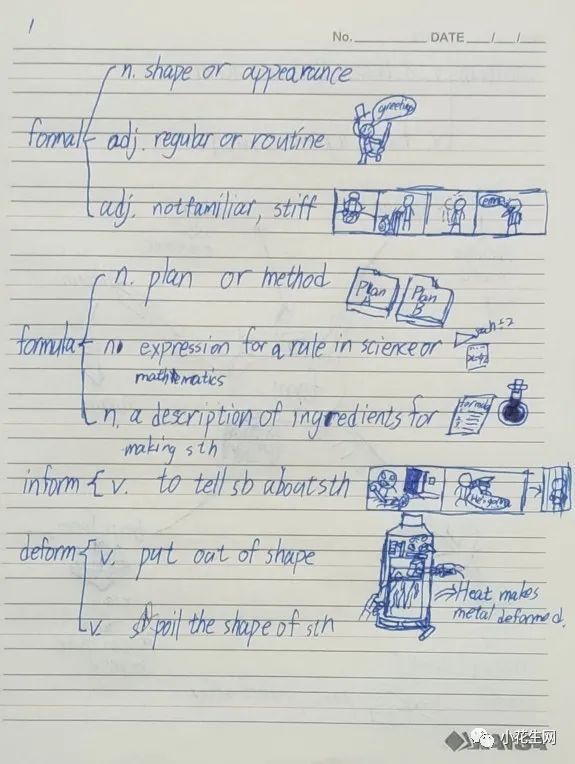 1
No. DATE / /
n. shape or appearance
greeting
formal adj. regular or routine
adj. notfamiliar, stiff
n. plan or method
Plan A Plan B
formula n. expression for a rule in science or
mathematics
n. a description of ingredients for
making sth
inform { v. to tell sb about sth
deform v. put out of shape
Heat makes
metal deformed.
v. spoil the shape of sth
小花生网